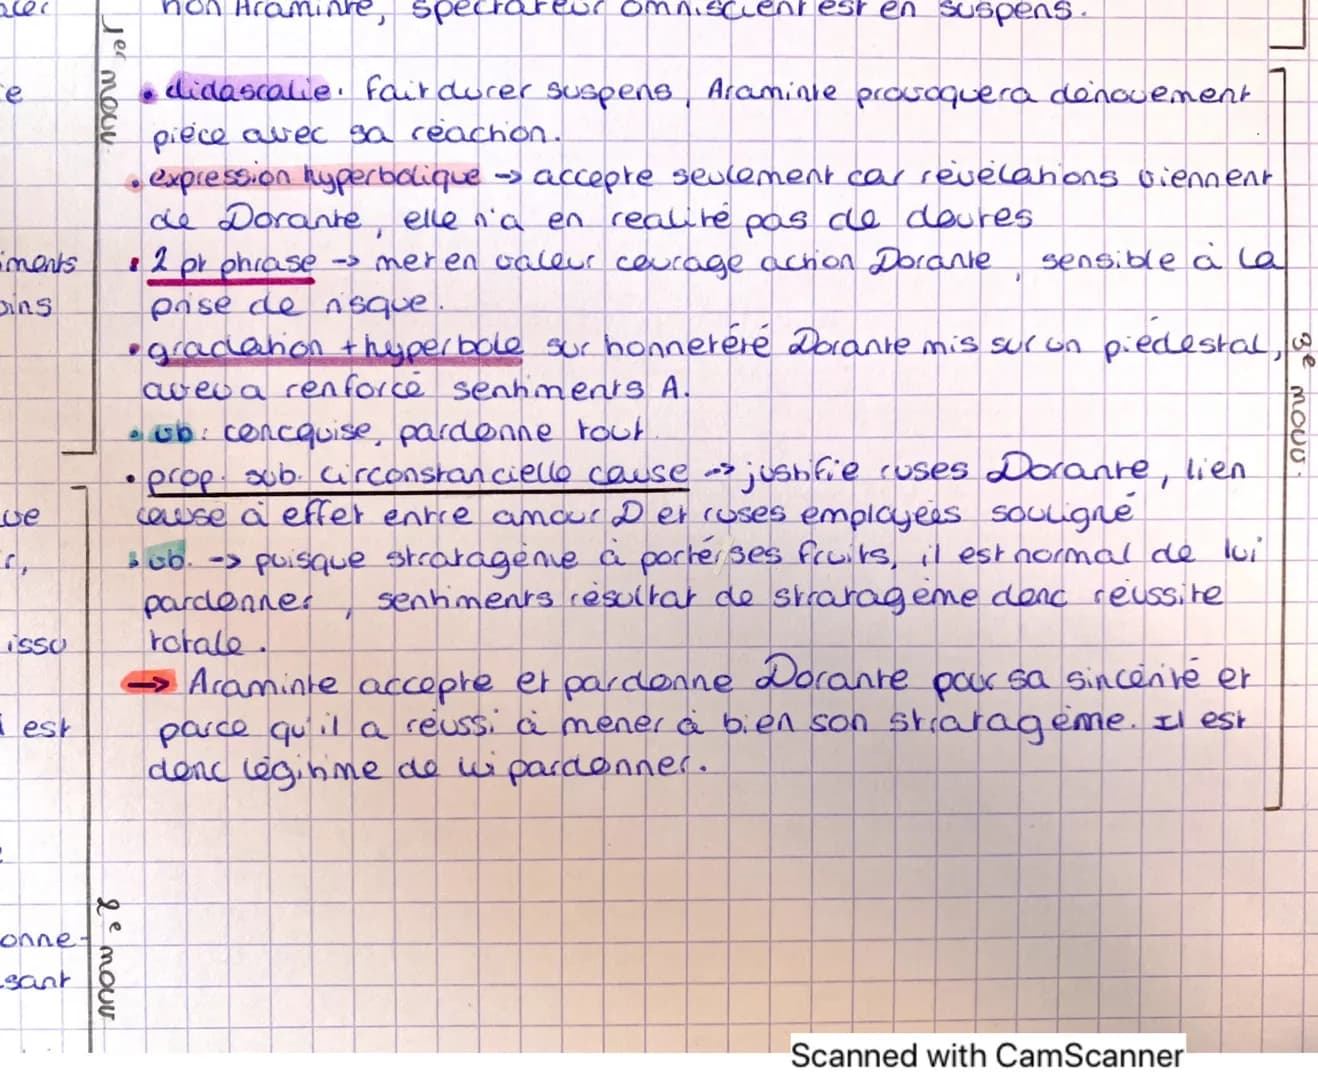 non Araminte, spectateur omniscient est en suspens.
1er mouv.
• didascalie. fait durer suspens, Araminte provoquera dénouement
pièce avec sa réaction.
• expression hyperbolique -> accepte seulement car révélations viennent
de Dorante, elle n'a en realité pas de doutes
• 2 pt phrase -> met en valeur courage action Dorante, sensible à la
prise de risque.
• gradation + hyperbole sur honneteré Dorante mis sur un piédestal,
aveu a renforcé sentiments A.
• vb: concquise, pardonne tout.
• prop. sub. circonstancielle cause -> justifie ruses Dorante, lien
cause à effet entre amour D et ruses employées souligné
• vb. -> puisque stratagème à portér ses fruits, il est normal de lui
pardonner, sentiments résultat de stratagème donc réussite
totale.
-> Araminte accepte et pardonne Dorante pour sa sincérité et
parce qu'il a réussi à mener à bien son stratagème. Il est
donc légitime de lui pardonner.
3e mouv.
e
iments
oins
ue
r,
issu
i est
onne-
sant
2e mouv.
Scanned with CamScanner